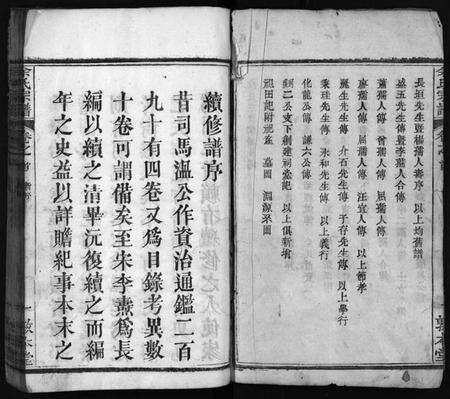 長垣先生暨楊孺人壽序 以上均舊譜
盛五先生傳暨李孺人合傳
蕭孺人傳 曾孺人傳 屈孺人傳
唐孺人傳 屈孺人傳 汪宜人傳 以上節孝
麗生先生傳 介石先生傳 于存先生傳 以上學行
秉珪先生傳 永和先生傳 以上義行
化龍公傳 謙六公傳
二公支下創建祠堂記 以上俱新增
祖田記附祀產 墓圖
續修譜序
昔司馬溫公作資治通鑑二百
九十有四卷又為目錄考異數
十卷可謂備矣至朱李燾為長
編以續之清畢沅復續之而編
年之史益以詳贍紀事本末之
余氏宗譜 卷之首
敦本堂